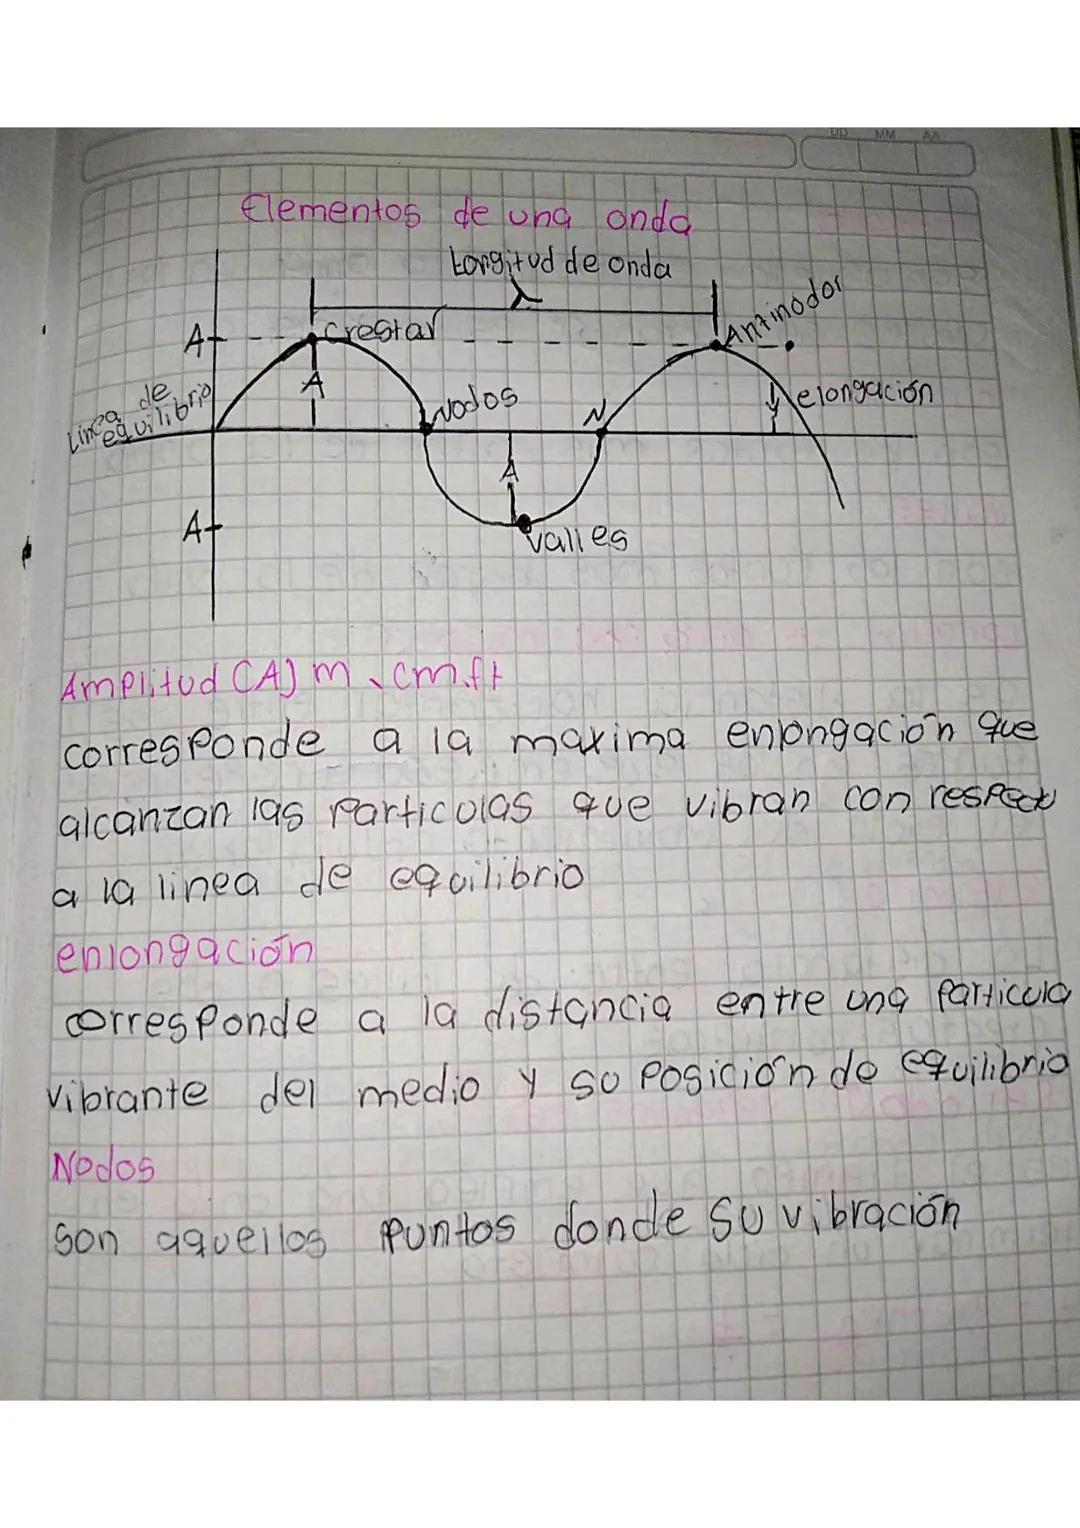 DD MM AA
Elementos de una onda
Longitud de onda
λ
Antinodor
A
crestar
A
Linea de
equilibrio
Nodos
N
y
elongación
A
A
Valles
Amplitud (A) m, cm.ft
corresponde a la maxima enlongación que
alcanzan las particulas que vibran con respecto
a la linea de equilibrio
enlongación
corresponde a la distancia entre una particula
vibrante del medio y su posición de equilibrio
Nodos
Son aquellos puntos donde su vibración